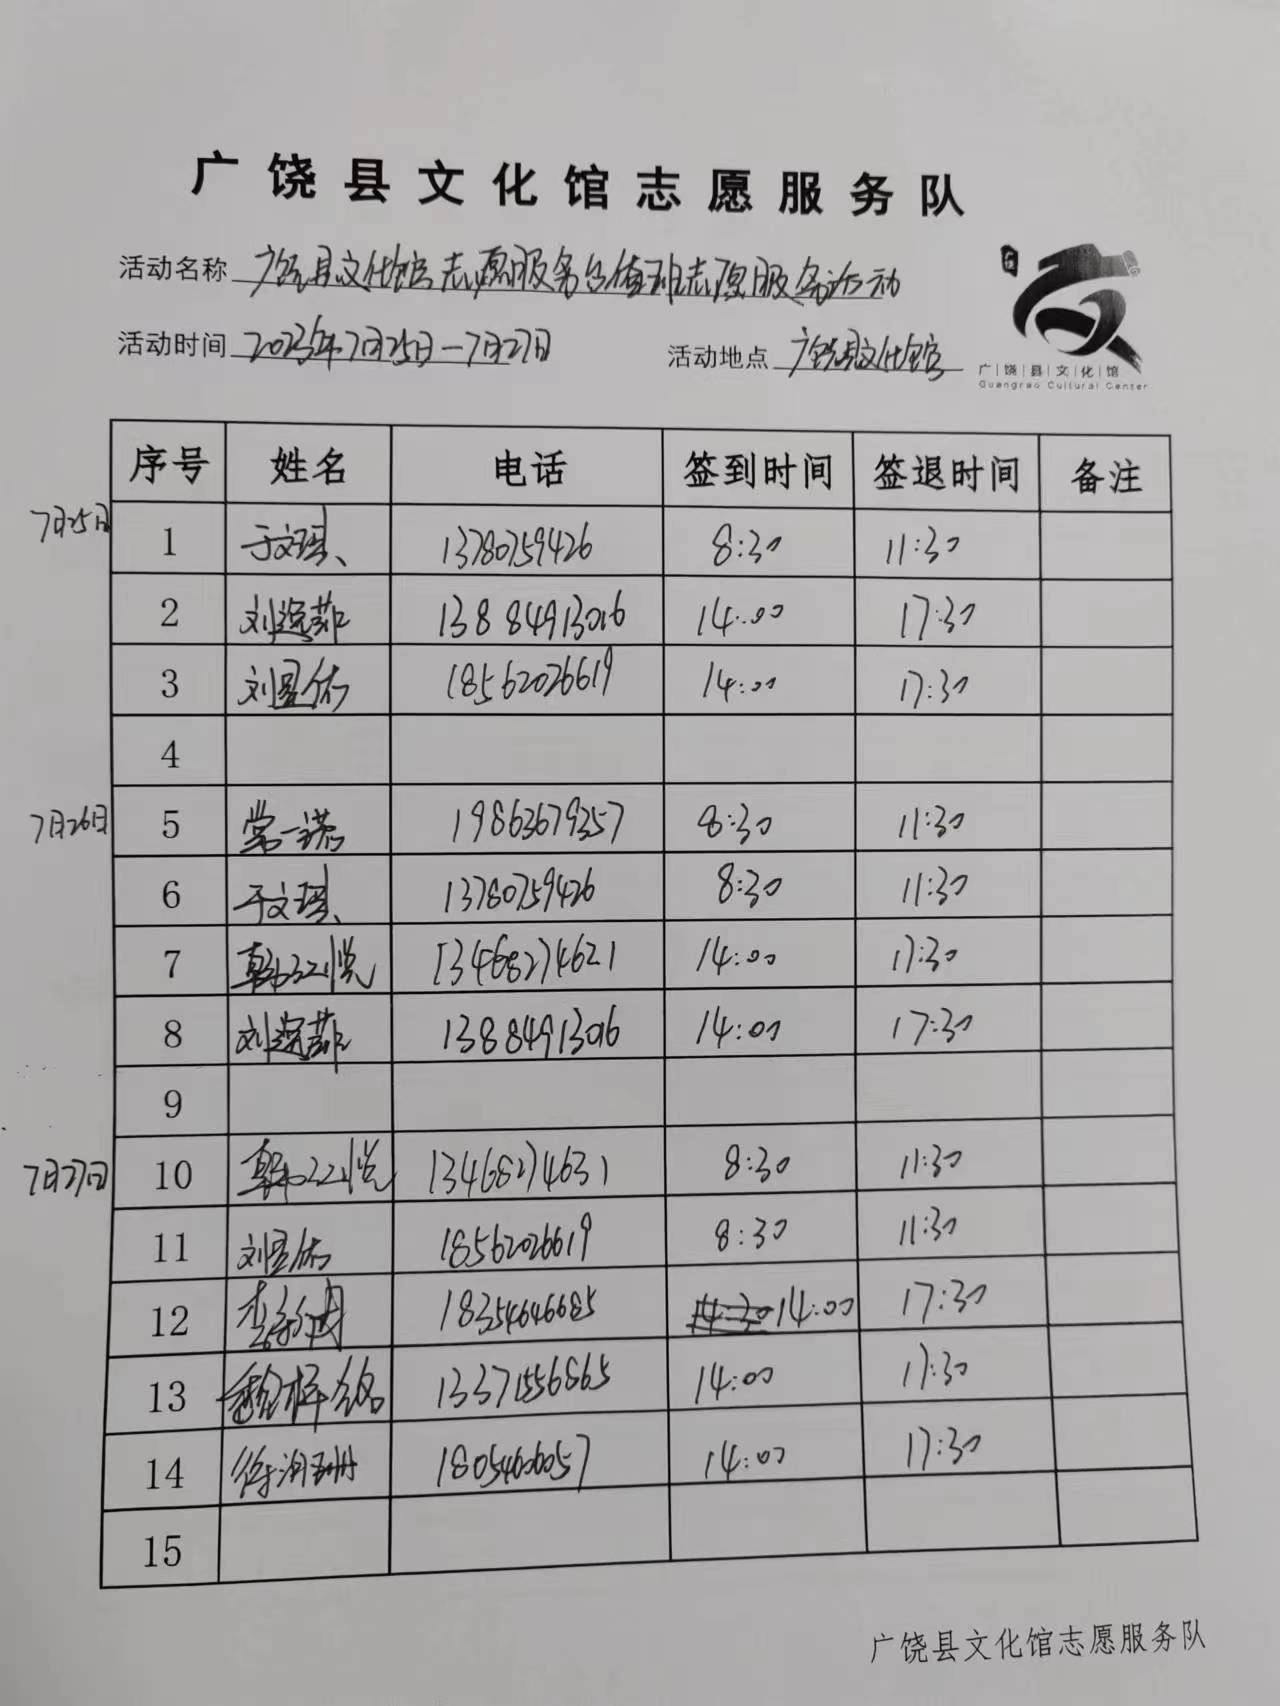 广饶县文化馆志愿服务队
活动名称 广饶县文化馆志愿服务台值班志愿服务活动
活动时间 2023年7月25日—7月27日 活动地点 广饶县文化馆
广|饶|县|文|化|馆
Guangrao Cultural Center
序号 姓名 电话 签到时间 签退时间 备注
7月25日 1 于文琪、 13780759426 8:30 11:30
2 刘 13884913016 14:00 17:30
3 刘昱佑 18562026619 14:00 17:30
4
7月26日 5 常一诺 19863679357 8:30 11:30
6 于文琪、 13780759426 8:30 11:30
7 韩 悦 13468274621 14:00 17:30
8 刘 13884913016 14:00 17:30
9
7月27日 10 韩 悦 13468274631 8:30 11:30
11 刘昱佑 18562026619 8:30 11:30
12 李 18354646685 14:30 14:00 17:30
13 13371556865 14:00 17:30
14 徐 珊 18054606057 14:00 17:30
15
广饶县文化馆志愿服务队